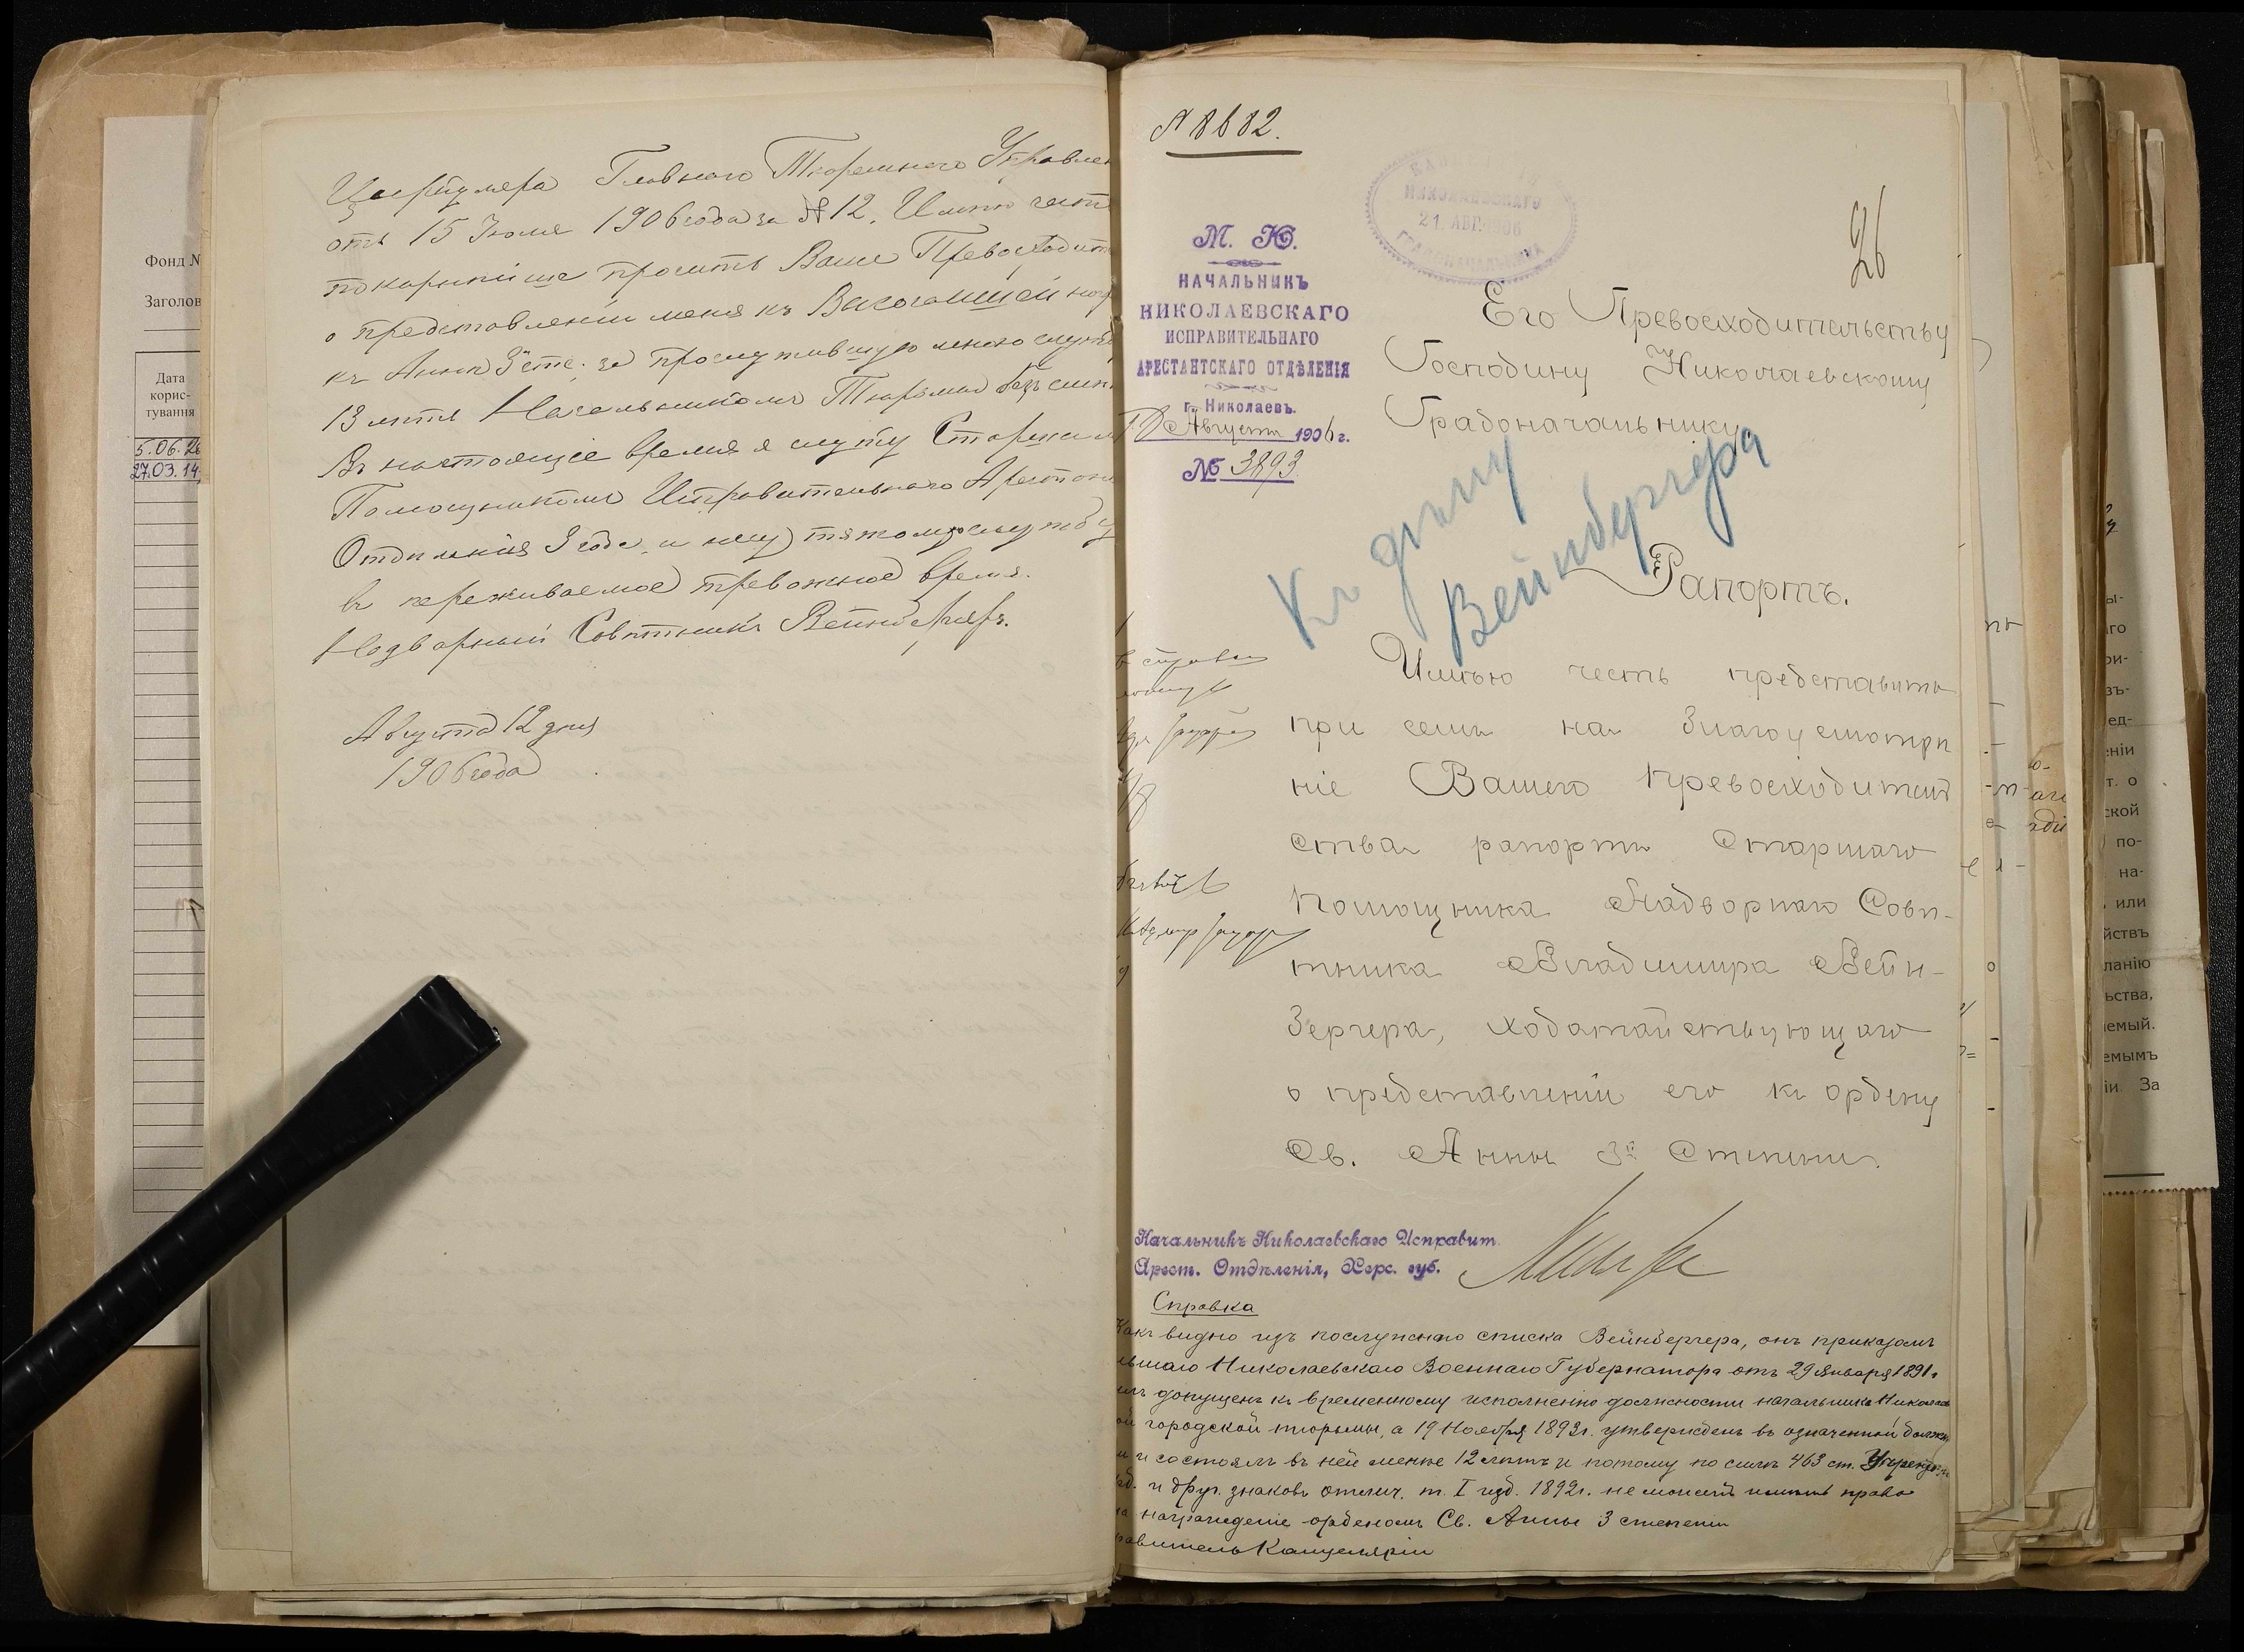 Фонд №
Заголов
Дата
корис-
тування
5.06.26
27.03.14
Циркуляра Главнаго Тюремнаго Управлен
отъ 15 Іюля 1906 года за № 12. Имѣю чест
покорнѣйше просить Ваше Превосходит
о представленіи меня къ Высочайшей наг
къ Аннѣ 3 ст. за прослужившую мною служб
13 лѣтъ Начальникомъ Тюрьмы безъ
Въ настоящее время я служу Старшим
Помощникомъ Исправительнаго Арестан
Отдѣленія 3 года, и несу тяжолую службу
въ переживаемое тревожное время.
Надворный Совѣтникъ Вейнбергеръ.
Августа 12 дня
1906 года
№ 8682.
НИКОЛАЕВСКАГО
21. АВГ. 1906
ГРАДОНАЧАЛЬНИКА
26
М. Ю.
НАЧАЛЬНИКЪ
НИКОЛАЕВСКАГО
ИСПРАВИТЕЛЬНАГО
АРЕСТАНТСКАГО ОТДѢЛЕНІЯ
г. Николаевъ.
Августа 1906 г.
№ 3893.
Его Превосходительству
Господину Николаевскому
Градоначальнику
Къ дѣлу
Вейнбергера
Рапортъ.
Имѣю честь представить
при семъ на благоусмотрѣ
ніе Вашего Превосходитель
ства рапортъ Старшаго
Помощника Надворнаго Совѣ-
тника Владимира Вейн-
бергера, ходатайствующаго
о представленіи его къ ордену
Св. Анны 3й Степени.
Начальникъ Николаевскаго Исправит.
Арест. Отдѣленія, Херс. губ.
Справка
Какъ видно изъ послужнаго списка Вейнбергера, онъ приказомъ
вшаго Николаевскаго Военнаго Губернатора отъ 29 Января 1891 г.
допущенъ къ временному исполненію должности начальника Николаев
ой городской тюрьмы, а 19 Ноября 1893 г. утвержденъ въ означенной должн
и и состоялъ въ ней менѣе 12 лѣтъ и потому по силѣ 463 ст. Учрежд.
и друг. знаковъ отлич. т. I изд. 1892 г. не можетъ имѣть право
на награжденіе орденомъ Св. Анны 3 степени
равитель Канцеляріи